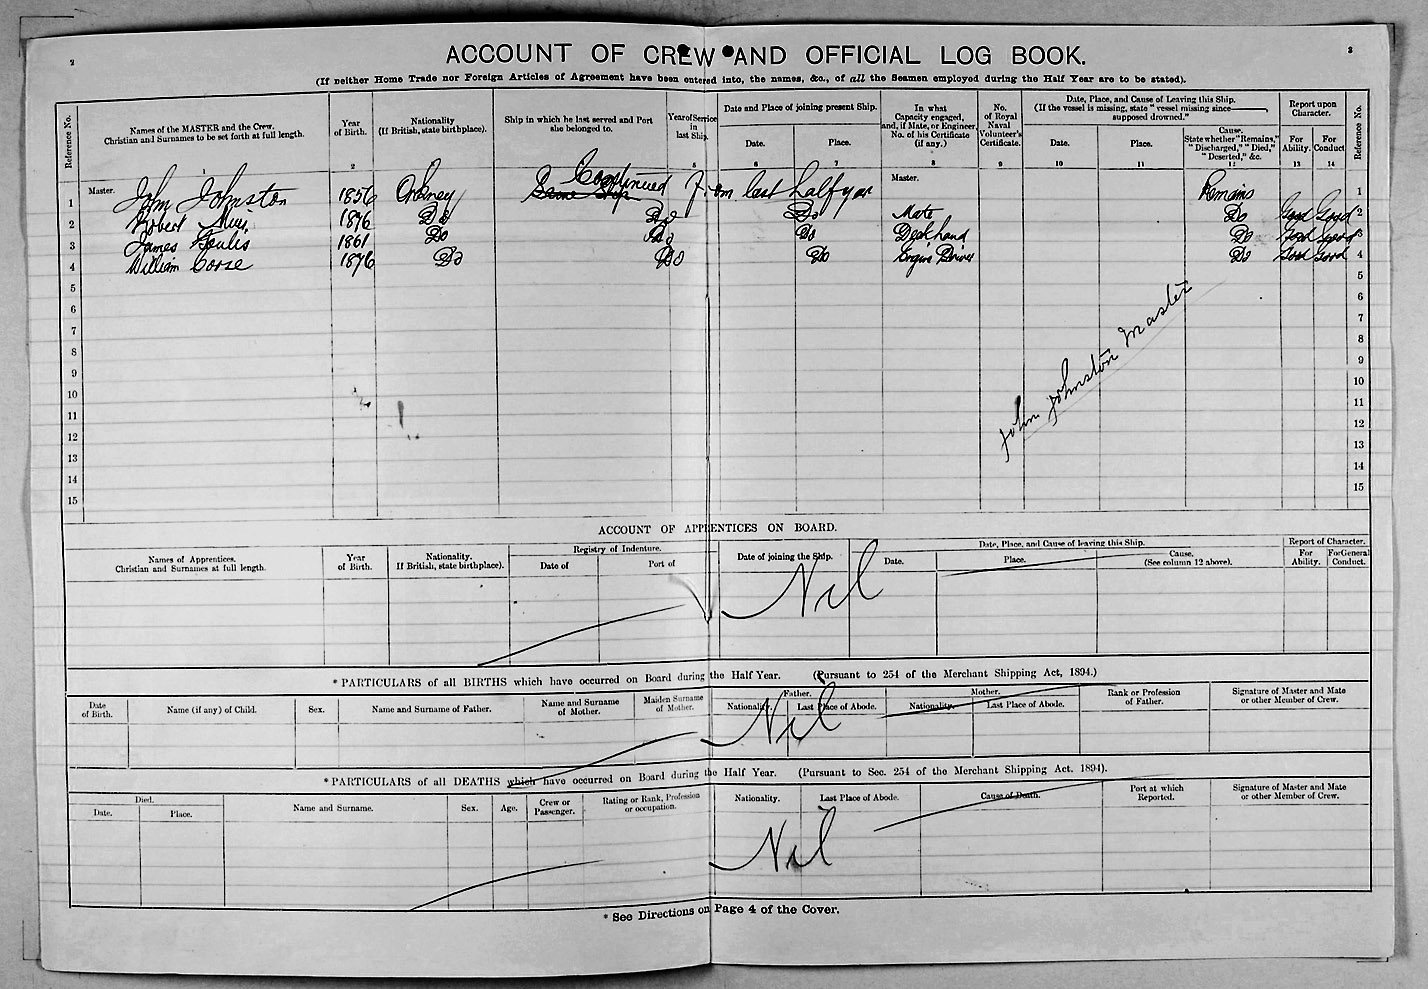 2
3
ACCOUNT OF CREW AND OFFICIAL LOG BOOK.
(If neither Home Trade nor Foreign Articles of Agreement have been entered into, the names, &c., of all the Seamen employed during the Half Year are to be stated).
Reference No.
Names of the MASTER and the Crew. Christian and Surnames to be set forth at full length.
Year of Birth.
Nationality (If British, state birthplace).
Ship in which he last served and Port she belonged to.
Year of Service in last Ship.
Date and Place of joining present Ship.
Date.
Place.
In what Capacity engaged, and, if Mate, or Engineer, No. of his Certificate (if any.)
No. of Royal Naval Volunteer's Certificate.
Date, Place, and Cause of Leaving this Ship. (If the vessel is missing, state "vessel missing since supposed drowned.")
Date.
Place.
Cause. State whether "Remains," "Discharged," "Died," "Deserted," &c.
Report upon Character.
For Ability.
For Conduct
Reference No.
1 2 5 6 7 8 9 10 11 12 13 14
1 Master. John Johnston 1856 Orkney Same Ship Continued from last half year Master. Remains 1
2 Robert Muir 1876 Do Do Do Mate Do Good Good 2
3 James Foulis 1861 Do Do Do Deck hand Do Good Good 3
4 William Corse 1876 Do Do Do Engine Driver Do Good Good 4
5 5
6 6
7 7
8 8
9 9
10 10
11 11
12 12
13 13
14 14
15 15
John Johnston Master
ACCOUNT OF APPRENTICES ON BOARD.
Names of Apprentices. Christian and Surnames at full length.
Year of Birth.
Nationality. If British, state birthplace).
Registry of Indenture.
Date of
Port of
Date of joining the Ship.
Date, Place, and Cause of leaving this Ship.
Date.
Place.
Cause. (See column 12 above).
Report of Character.
For Ability.
For General Conduct.
Nil
* PARTICULARS of all BIRTHS which have occurred on Board during the Half Year. (Pursuant to 254 of the Merchant Shipping Act, 1894.)
Date of Birth.
Name (if any) of Child.
Sex.
Name and Surname of Father.
Name and Surname of Mother.
Maiden Surname of Mother.
Father.
Nationality.
Last Place of Abode.
Mother.
Nationality.
Last Place of Abode.
Rank or Profession of Father.
Signature of Master and Mate or other Member of Crew.
Nil
* PARTICULARS of all DEATHS which have occurred on Board during the Half Year. (Pursuant to Sec. 254 of the Merchant Shipping Act. 1894).
Died.
Date.
Place.
Name and Surname.
Sex.
Age.
Crew or Passenger.
Rating or Rank, Profession or occupation.
Nationality.
Last Place of Abode.
Cause of Death.
Port at which Reported.
Signature of Master and Mate or other Member of Crew.
Nil
* See Directions on Page 4 of the Cover.